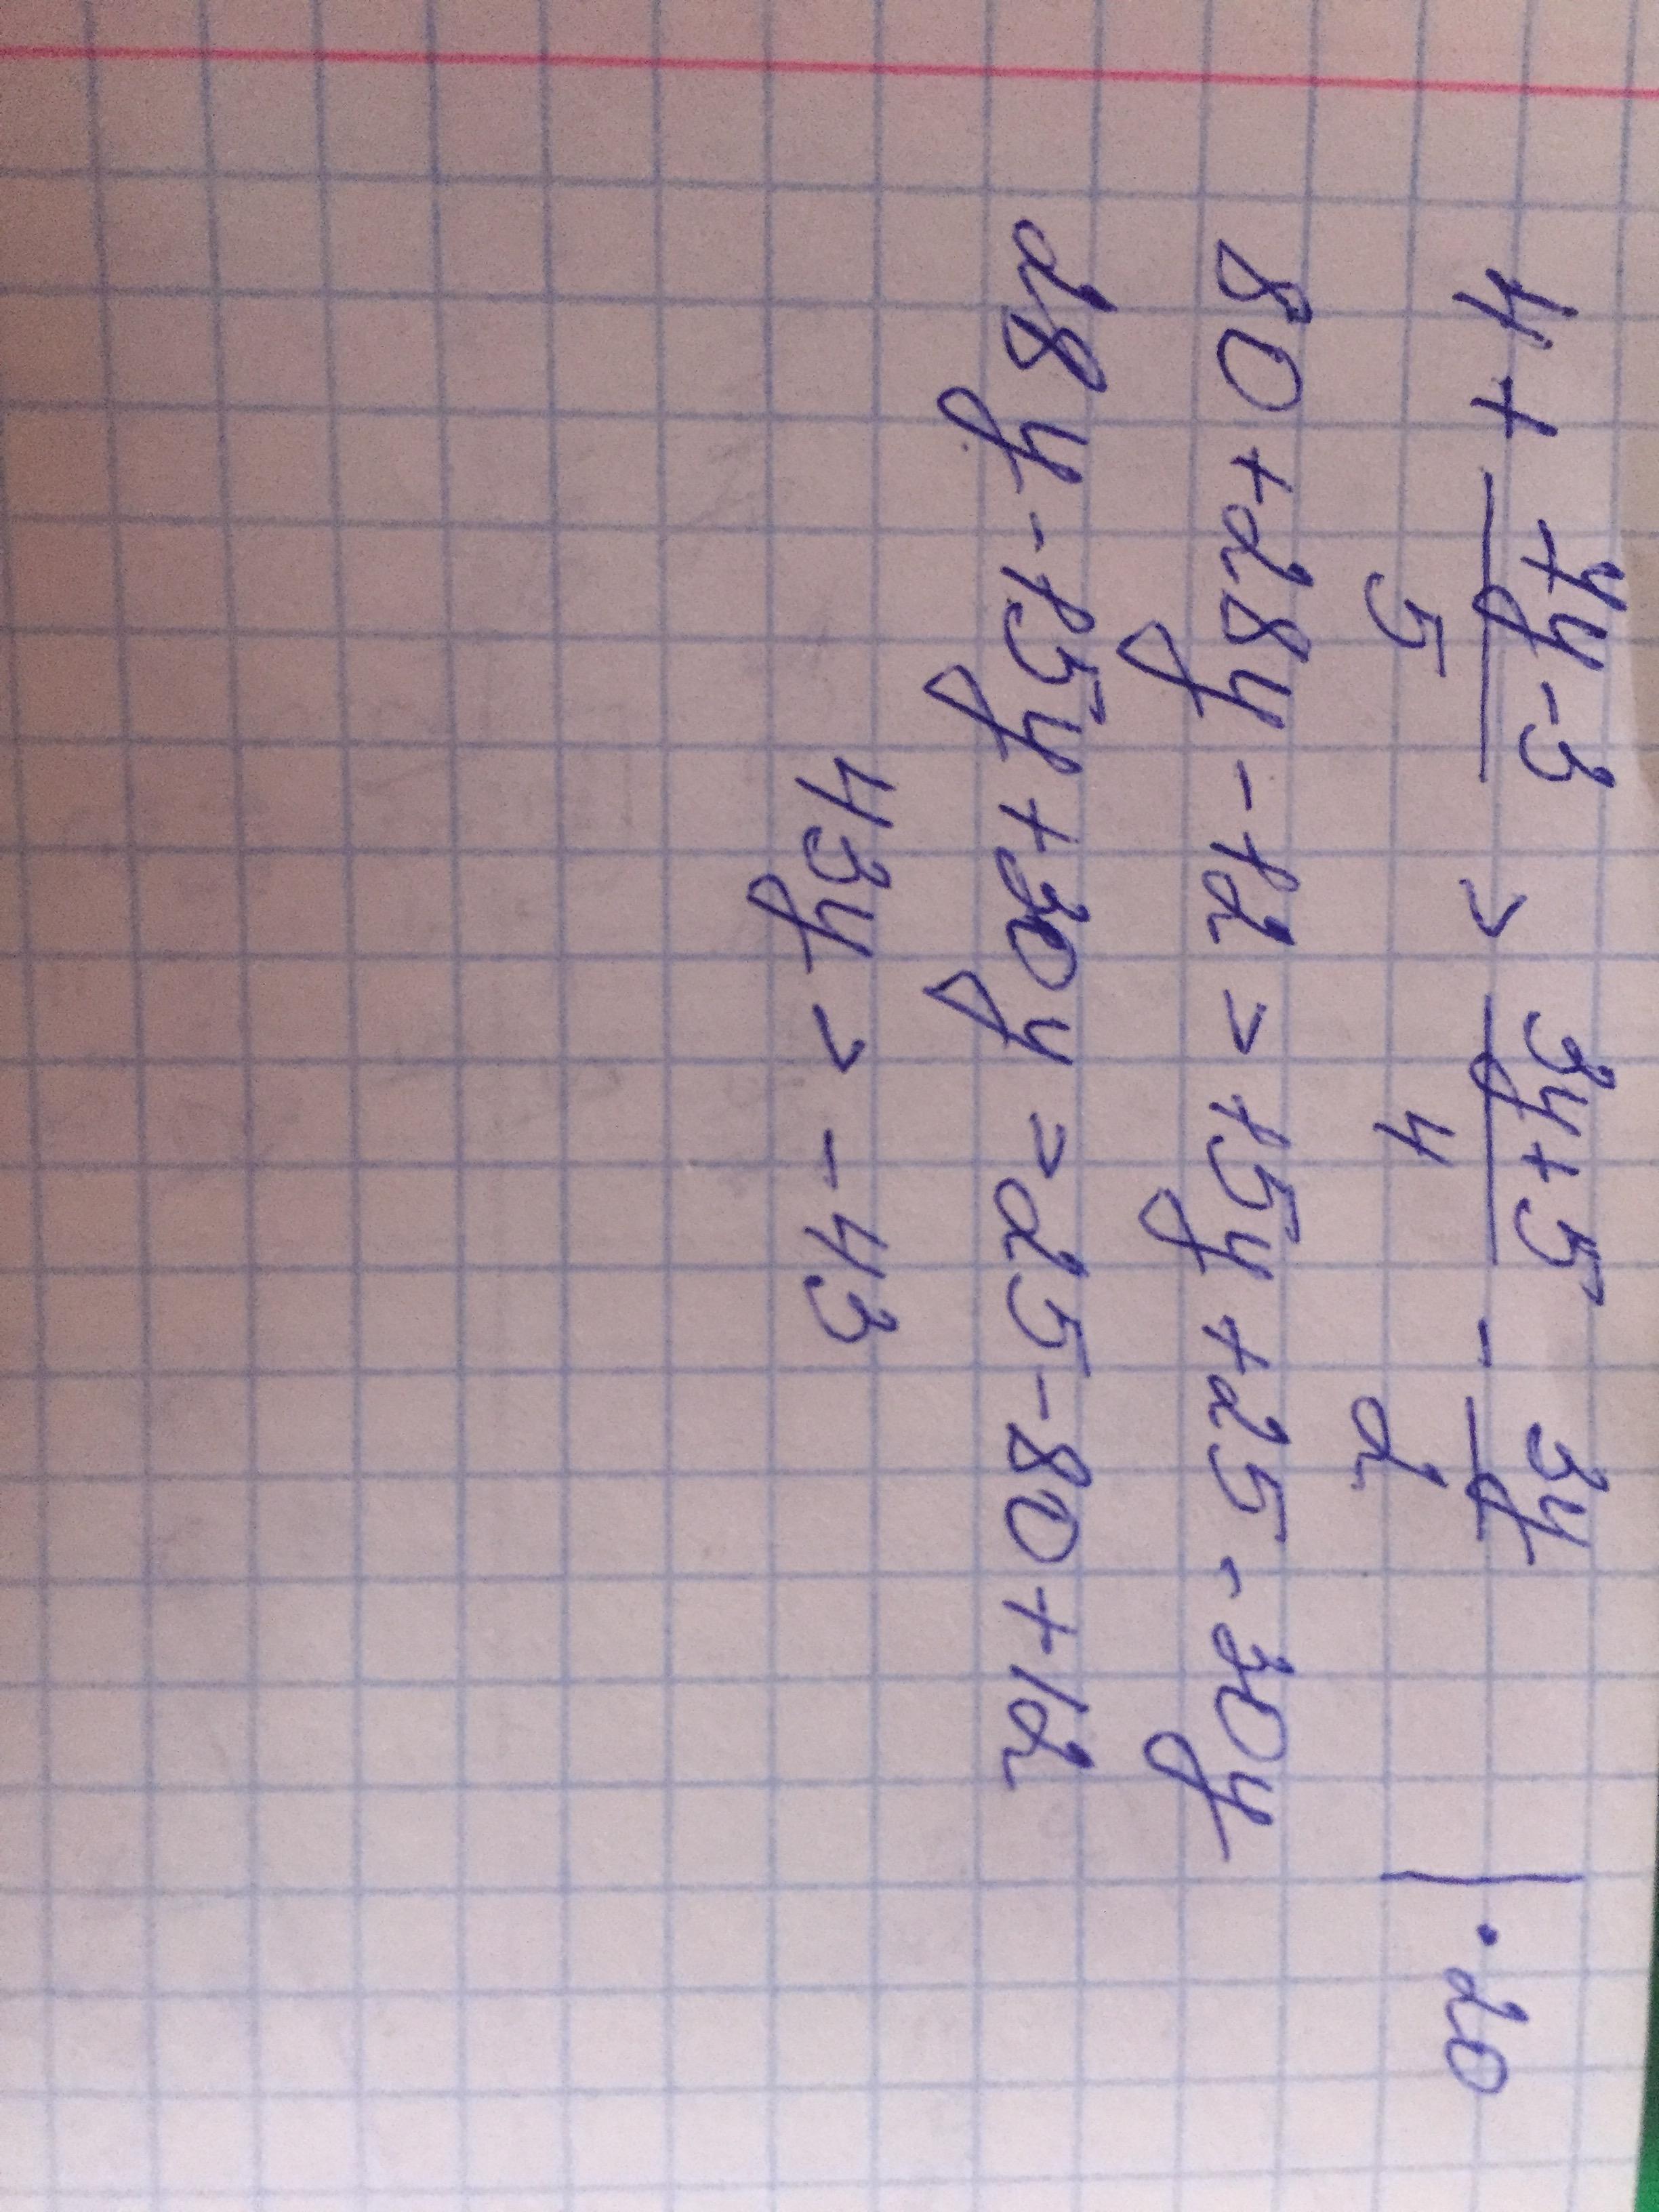 4 + 7y - 3 / 5 > 3y + 5 / 4 - 3y / 2 | · 20
80 + 28y - 12 > 15y + 25 - 30y
28y - 15y + 30y > 25 - 80 + 12
43y > - 43